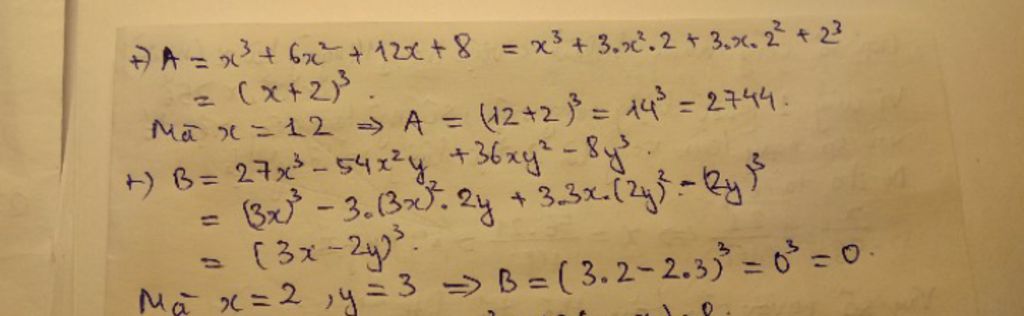 +) A = x³ + 6x² + 12x + 8 = x³ + 3.x².2 + 3.x.2² + 2³
= (x+2)³.
Mà x = 12 ⇒ A = (12+2)³ = 14³ = 2744.
+) B = 27x³ - 54x²y + 36xy² - 8y³.
= (3x)³ - 3.(3x)².2y + 3.3x.(2y)² - (2y)³
= (3x - 2y)³.
Mà x = 2, y = 3 ⇒ B = (3.2 - 2.3)³ = 0³ = 0.